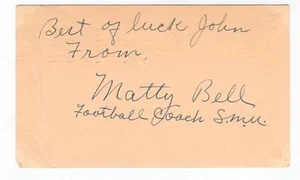 Best of luck John
From,
Matty Bell
Football Coach S.M.U.